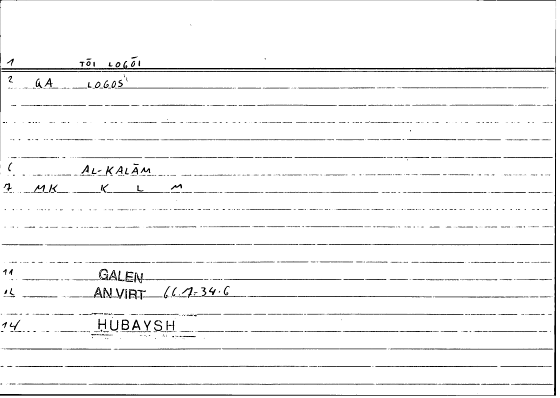 1 TŌI LOGŌI
2 GA LOGOS
6 AL-KALĀM
7 MK K L M
11 GALEN
12 AN VIRT 66.1=34.6
14 HUBAYSH